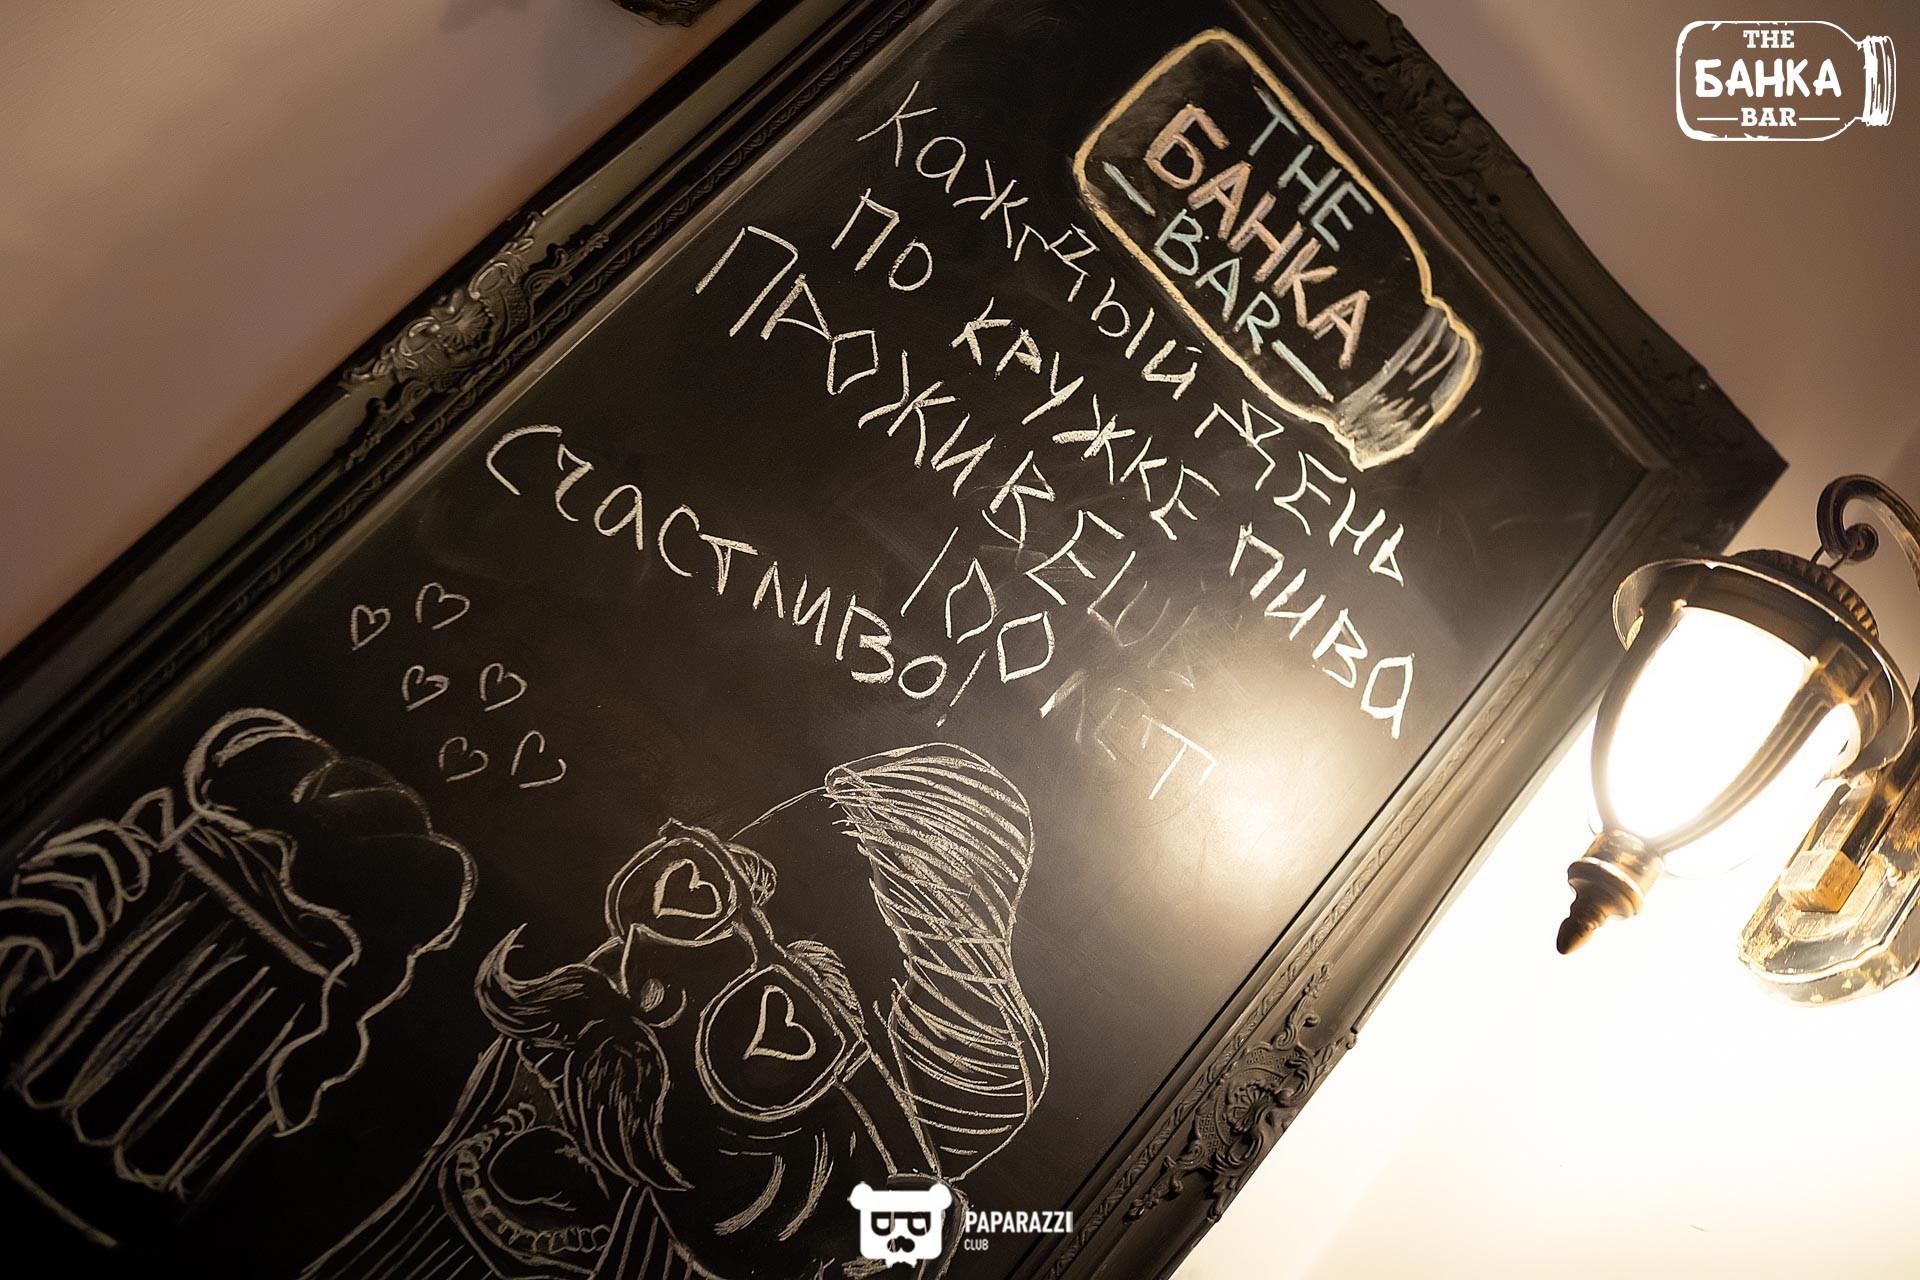 THE
БАНКА
BAR
THE
БАНКА
BAR
Каждый день
по кружке пива
проживешь
100 лет
счастливо!
PAPARAZZI
CLUB